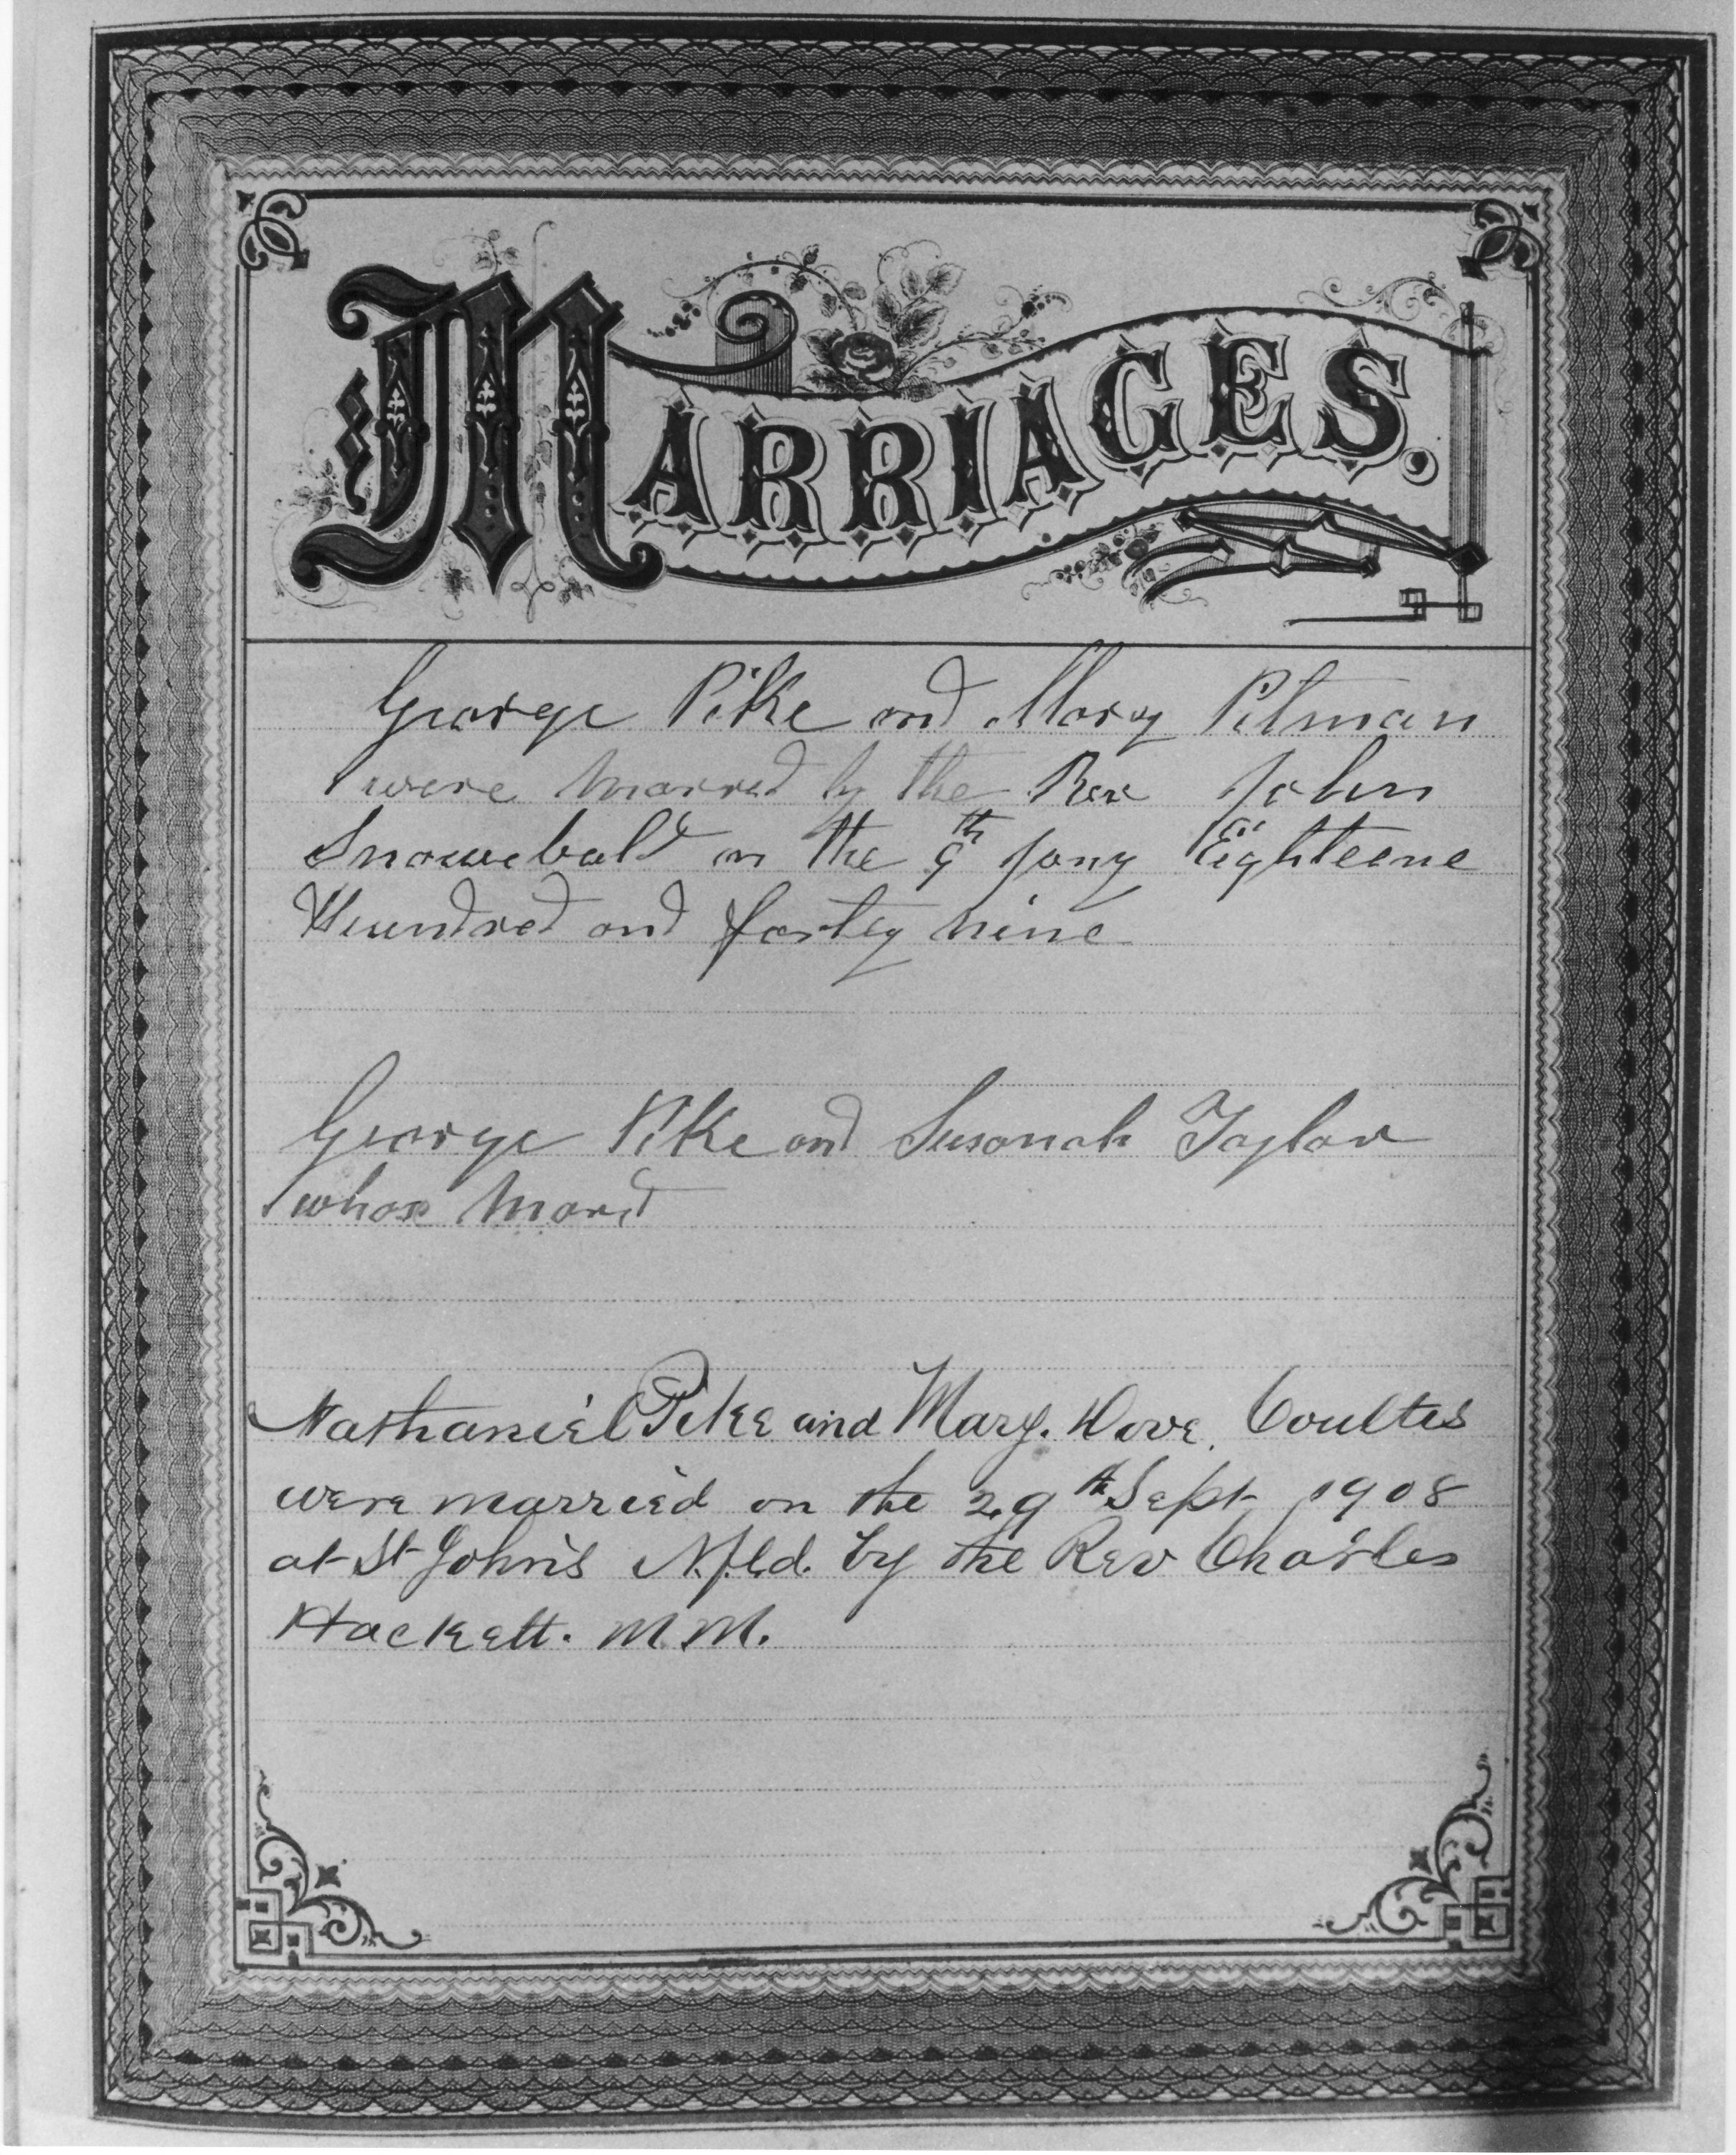 MARRIAGES.
George Pike and Mary Pitman
were Marred by the Rev John
Snowebald on the 9th Jany Eighteene
Hundred and fortey nine
George Pike and Susanah Taylor
whas Mard
Nathaniel Pike and Mary. Dove. Coultes
were married on the 29th Sept 1908
at St John's N.f.l.d. by the Rev Charles
Hackett. M.M.